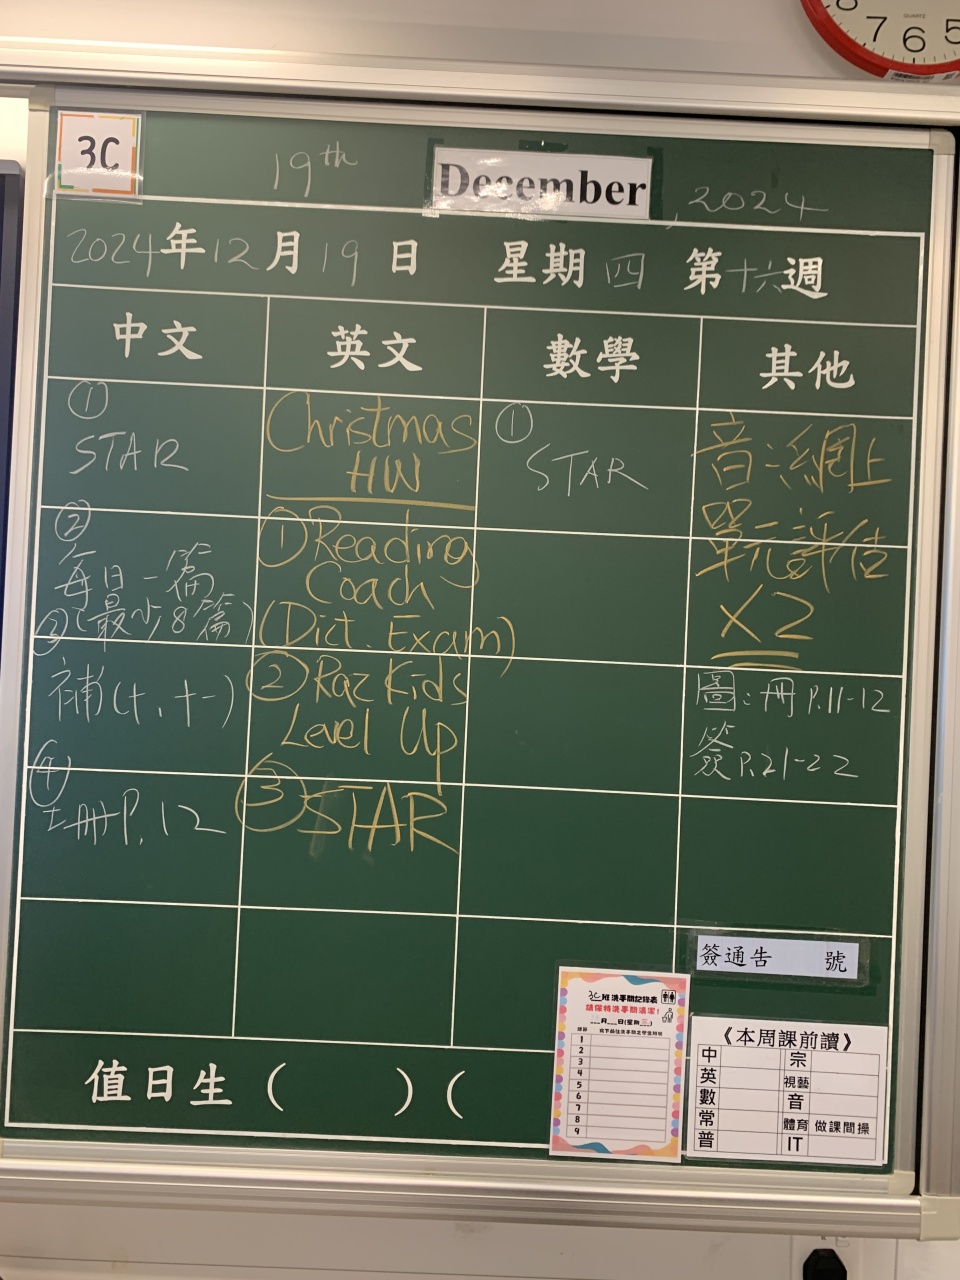 8 7 6 5
QUARTZ
3C
19th December, 2024
2024年12月19日 星期四 第十六週
中文
英文
數學
其他
①
STAR
②
每日一篇
(最少8篇)
③
補(十、十一)
④
P.12
Christmas
HW
①Reading
Coach
(Dict. Exam)
②Raz Kids
Level Up
③STAR
①
STAR
音:網上
單元評估
X2
圖:冊P.11-12
簽P.21-22
簽通告 號
3C班洗手間記錄表
請保持洗手間清潔!
___月___日(星期三)
1
2
3
4
5
6
7
8
9
《本周課前讀》
中 宗
英 視藝
數 音
常 體育 做課間操
普 IT
值日生 ( ) (